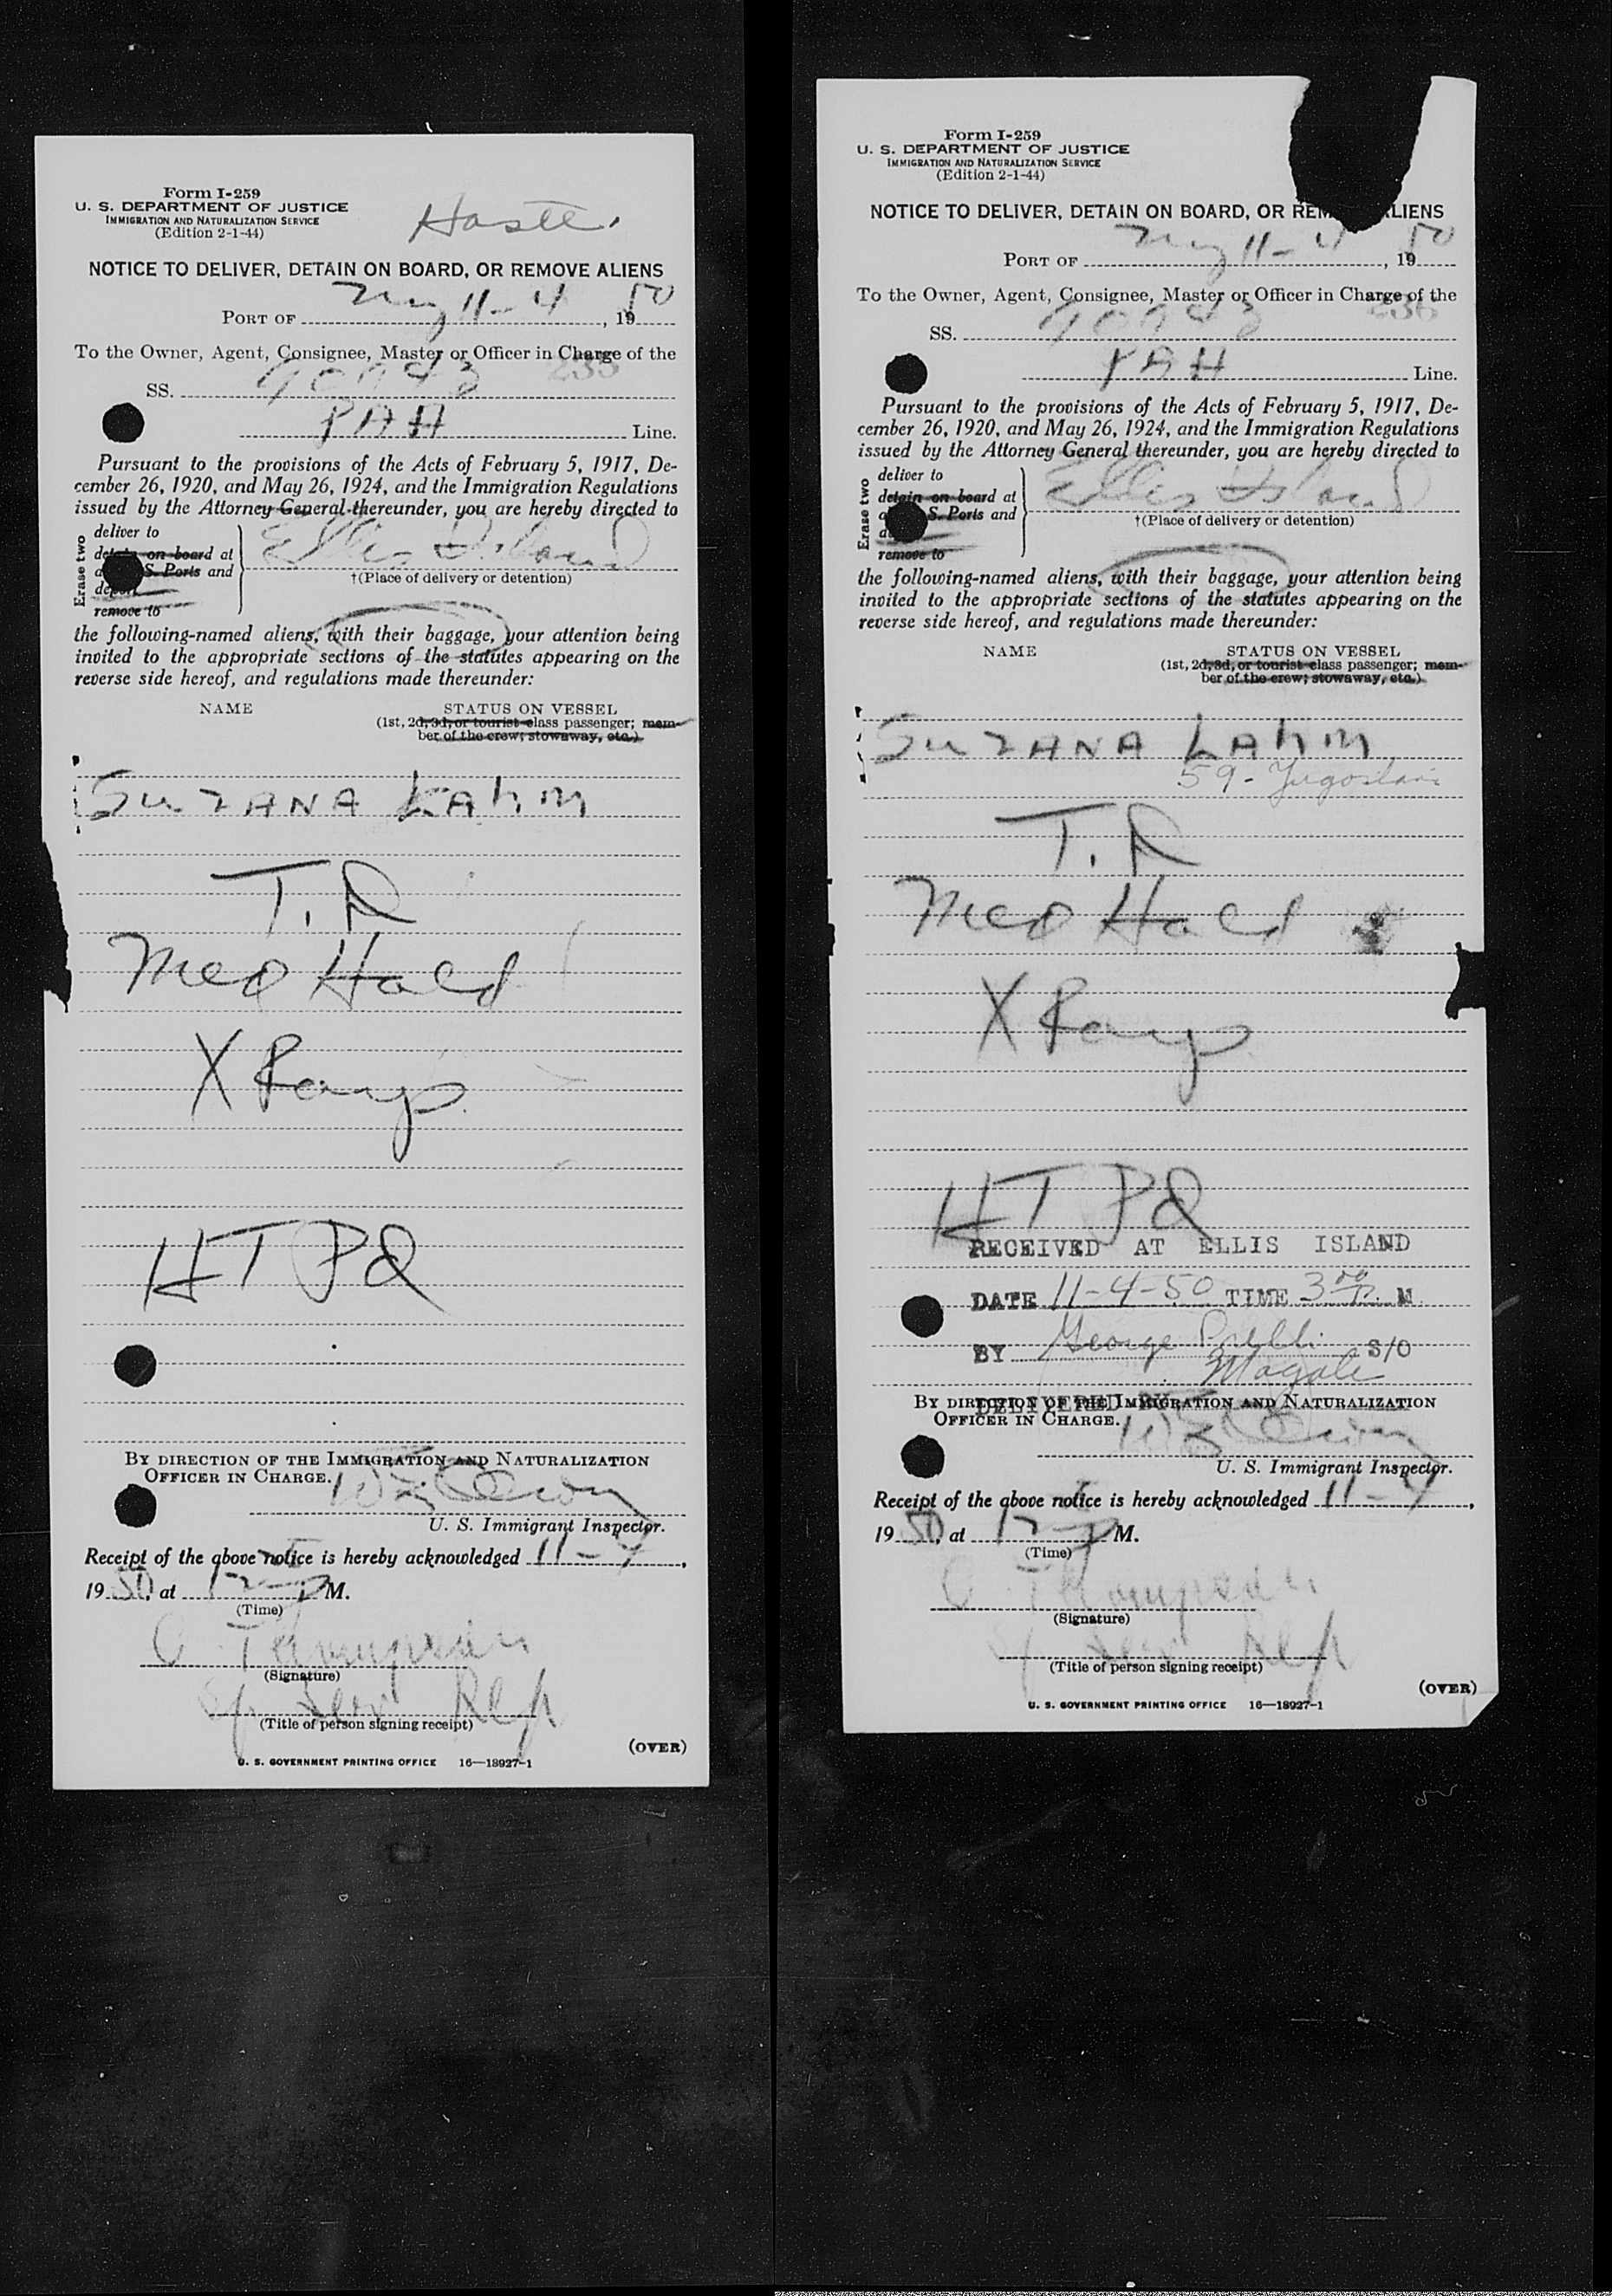 Form I-259
U. S. DEPARTMENT OF JUSTICE
IMMIGRATION AND NATURALIZATION SERVICE
(Edition 2-1-44)
NOTICE TO DELIVER, DETAIN ON BOARD, OR REMOVE ALIENS
PORT OF 11-4, 1950
To the Owner, Agent, Consignee, Master or Officer in Charge of the
SS.
PAA Line.
Pursuant to the provisions of the Acts of February 5, 1917, De-
cember 26, 1920, and May 26, 1924, and the Immigration Regulations
issued by the Attorney General thereunder, you are hereby directed to
Erase two
deliver to
detain on board at
S. Ports and
deport
remove to
Ellis Island
†(Place of delivery or detention)
the following-named aliens, with their baggage, your attention being
invited to the appropriate sections of the statutes appearing on the
reverse side hereof, and regulations made thereunder:
NAME STATUS ON VESSEL
(1st, 2d, 3d, or tourist class passenger; mem-
ber of the crew; stowaway, etc.)
SUZANA KAhM
T.D
Med Hold
X Rays
HT PQ
BY DIRECTION OF THE IMMIGRATION AND NATURALIZATION
OFFICER IN CHARGE.
U. S. Immigrant Inspector.
Receipt of the above notice is hereby acknowledged 11-4,
1950, at 12 P M.
(Time)
C. Thompson
(Signature)
Serv Rep
(Title of person signing receipt)
(OVER)
U. S. GOVERNMENT PRINTING OFFICE 16—18927-1
Form I-259
U. S. DEPARTMENT OF JUSTICE
IMMIGRATION AND NATURALIZATION SERVICE
(Edition 2-1-44)
NOTICE TO DELIVER, DETAIN ON BOARD, OR REM LIENS
PORT OF 11-4, 1950
To the Owner, Agent, Consignee, Master or Officer in Charge of the
SS.
PAA Line.
Pursuant to the provisions of the Acts of February 5, 1917, De-
cember 26, 1920, and May 26, 1924, and the Immigration Regulations
issued by the Attorney General thereunder, you are hereby directed to
Erase two
deliver to
detain on board at
S. Ports and
remove to
Ellis Island
†(Place of delivery or detention)
the following-named aliens, with their baggage, your attention being
invited to the appropriate sections of the statutes appearing on the
reverse side hereof, and regulations made thereunder:
NAME STATUS ON VESSEL
(1st, 2d, 3d, or tourist class passenger; mem-
ber of the crew; stowaway, etc.)
SUZANA KAhM
59- Yugoslav
T.D
Med Hold
X Rays
HT PQ
RECEIVED AT ELLIS ISLAND
DATE 11-4-50 TIME 3 00 P. M
BY George S/O
DELIVERED BY
BY DIRECTION OF THE IMMIGRATION AND NATURALIZATION
OFFICER IN CHARGE.
U. S. Immigrant Inspector.
Receipt of the above notice is hereby acknowledged 11-4,
1950, at 12 P M.
(Time)
C. Thompson
(Signature)
Serv Rep
(Title of person signing receipt)
(OVER)
U. S. GOVERNMENT PRINTING OFFICE 16—18927-1